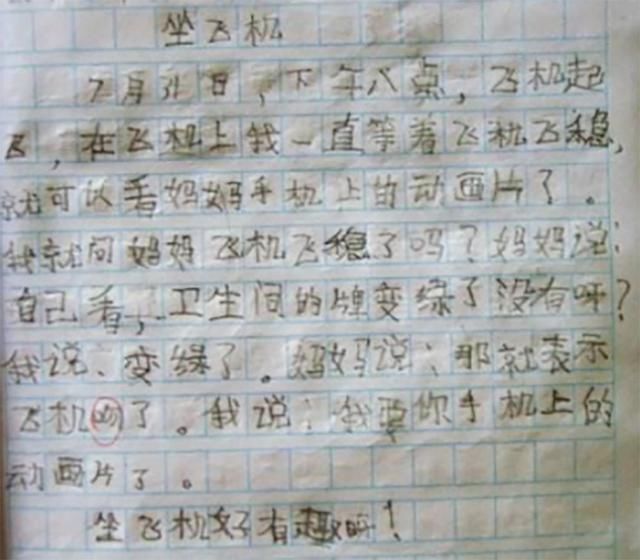 坐飞机
7月31日，下午八点，飞机起
飞，在飞机上我一直等着飞机飞稳，
就可以看妈妈手机上的动画片了。
我就问妈妈飞机飞稳了吗？妈妈说：
自己看，卫生间的牌变绿了没有呀？
我说、变绿了。妈妈说：那就表示
飞机了。我说：我要你手机上的
动画片了。
坐飞机好有趣啊！